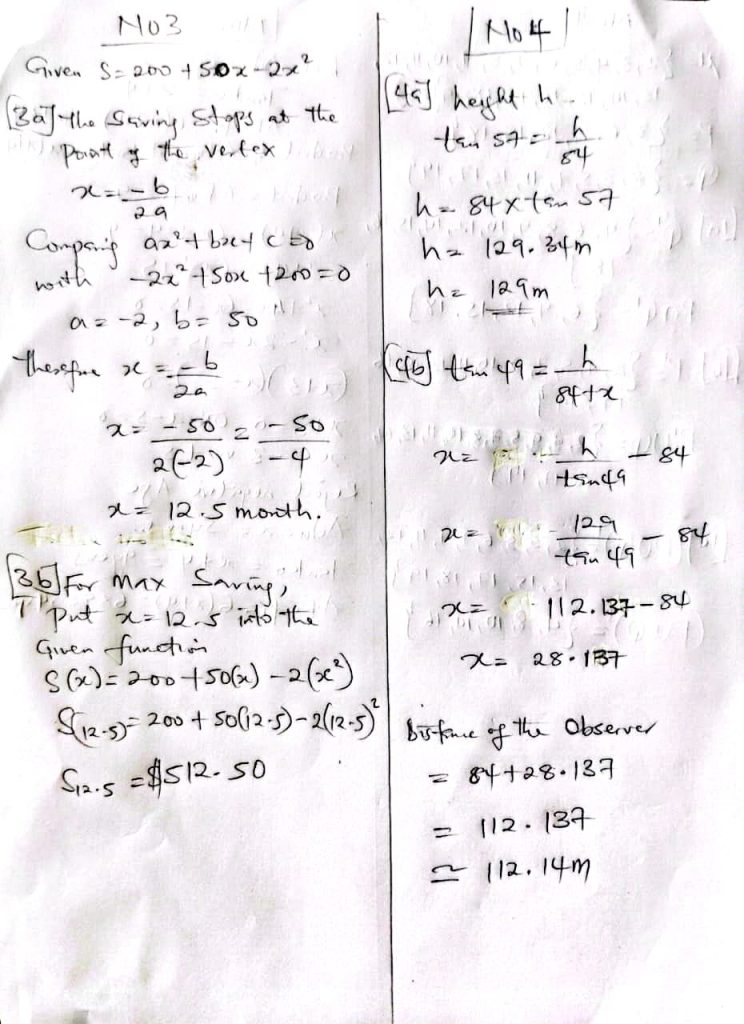 No 3
Given S = 200 + 50x - 2x²
[3a] The Saving Stops at the
point of the vertex
x = -b/2a
Comparing ax² + bx + c = 0
with -2x² + 50x + 200 = 0
a = -2, b = 50
Therefore x = -b/2a
x = -50/2(-2) = -50/-4
x = 12.5 month.
[3b] For max Saving,
Put x = 12.5 into the
Given function
S(x) = 200 + 50(x) - 2(x²)
S(12.5) = 200 + 50(12.5) - 2(12.5)²
S12.5 = $512.50
No 4
[4a] height h
tan 57 = h/84
h = 84 x tan 57
h = 129.34m
h = 129m
[4b] tan 49 = h/84+x
x = h/tan49 - 84
x = 129/tan 49 - 84
x = 112.137 - 84
x = 28.137
Distance of the Observer
= 84 + 28.137
= 112.137
≃ 112.14m